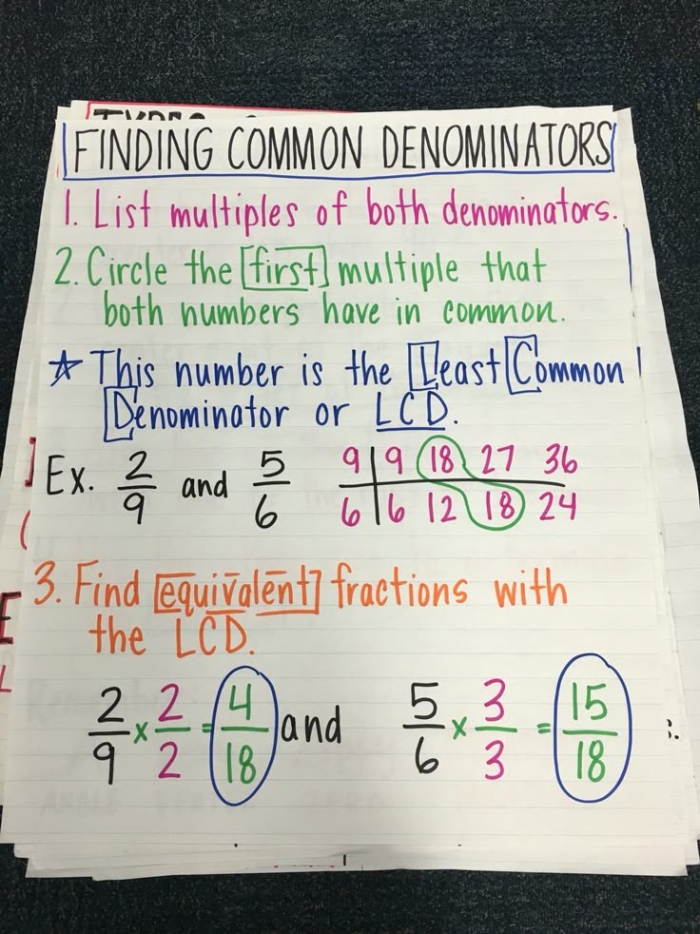 FINDING COMMON DENOMINATORS
1. List multiples of both denominators.
2. Circle the [first] multiple that
both numbers have in common.
☆ This number is the Least Common
Denominator or LCD.
Ex. 2/9 and 5/6
9 | 9 18 27 36
6 | 6 12 18 24
3. Find [equivalent] fractions with
the LCD.
2/9 × 2/2 = 4/18 and 5/6 × 3/3 = 15/18